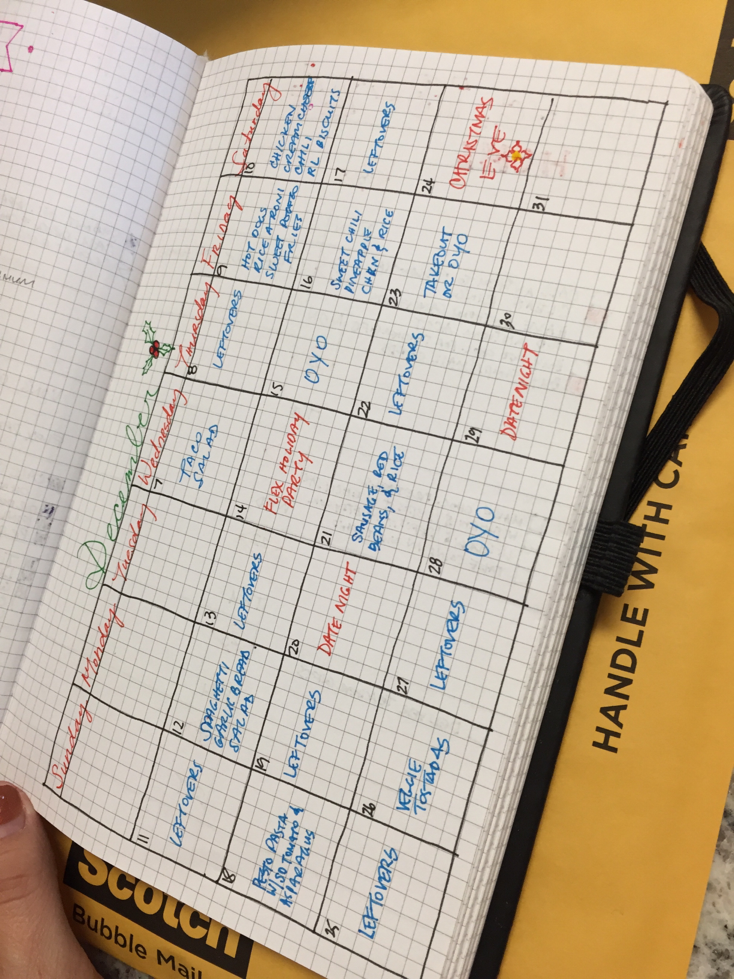 December
Sunday
Monday
Tuesday
Wednesday
Thursday
Friday
Saturday
7
TACO
SALAD
8
LEFTOVERS
9
HOT DOGS
RICE A RONI
SWEET POTATO
FRIES
10
CHICKEN
CREAM CHEESE
CHILI
RL BISCUITS
11
LEFTOVERS
12
SPAGHETTI
GARLIC BREAD
SALAD
13
LEFTOVERS
14
FLEX HOLIDAY
PARTY
15
OYO
16
SWEET CHILI
PINEAPPLE
CHKN & RICE
17
LEFTOVERS
18
PESTO PASTA
W/ SD TOMATO &
ASPARAGUS
19
LEFTOVERS
20
DATE NIGHT
21
SAUSAGE, RED
BEANS, & RICE
22
LEFTOVERS
23
TAKEOUT
OR OYO
24
CHRISTMAS
EVE
25
LEFTOVERS
26
VEGGIE
TOSTADAS
27
LEFTOVERS
28
OYO
29
DATE NIGHT
30
31
HANDLE WITH CA
Scotch
Bubble Mail